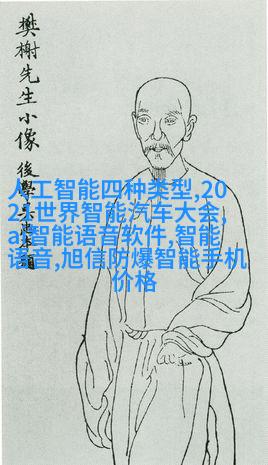 樊榭先生小像
後學吳
人工智能四种类型,20
21世界智能汽车大会,
ai智能语音软件,智能
语音,旭信防爆智能手机
价格